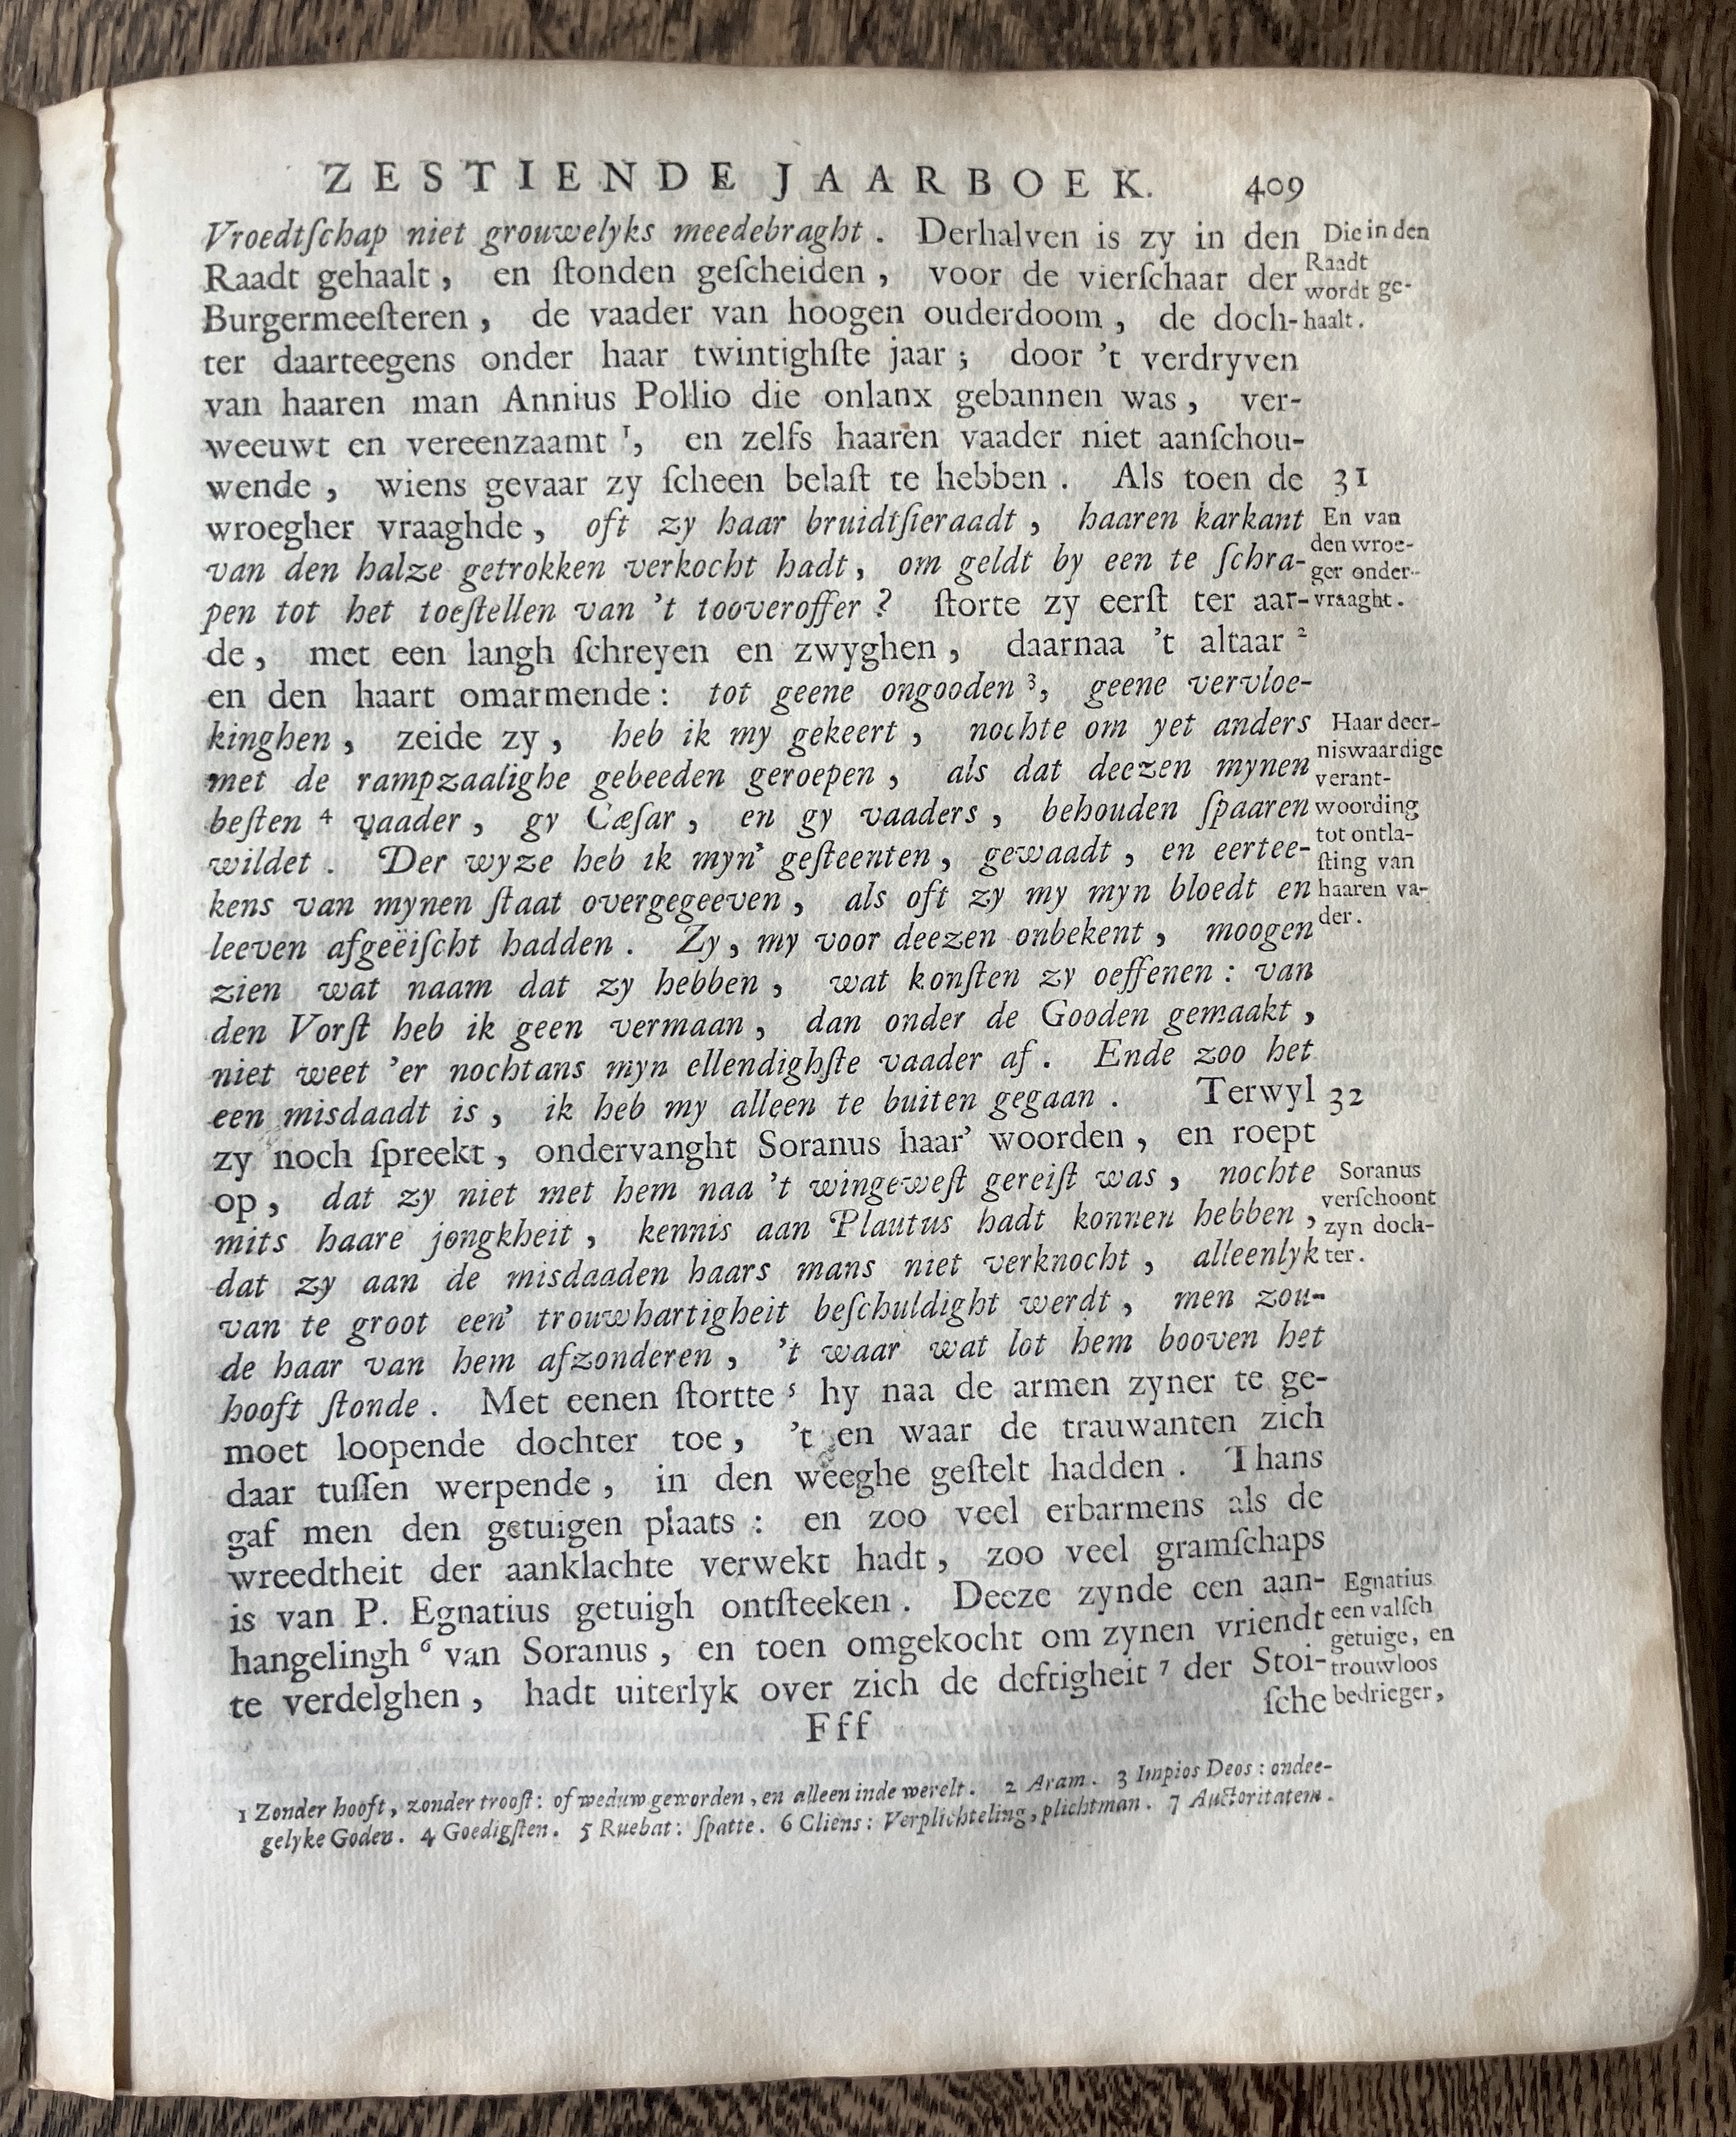 ZESTIENDE JAARBOEK. 409
Vroedtſchap niet grouwelyks meedebraght. Derhalven is zy in den
Raadt gehaalt, en ſtonden geſcheiden, voor de vierſchaar der
Burgermeeſteren, de vaader van hoogen ouderdoom, de doch-
ter daarteegens onder haar twintighſte jaar; door 't verdryven
van haaren man Annius Pollio die onlanx gebannen was, ver-
weeuwt en vereenzaamt ¹, en zelfs haaren vaader niet aanſchou-
wende, wiens gevaar zy ſcheen belaſt te hebben. Als toen de
wroegher vraaghde, oft zy haar bruidtſieraadt, haaren karkant
van den halze getrokken verkocht hadt, om geldt by een te ſchra-
pen tot het toeſtellen van 't tooveroffer? ſtorte zy eerſt ter aar-
de, met een langh ſchreyen en zwyghen, daarnaa 't altaar ²
en den haart omarmende: tot geene ongooden ³, geene vervloe-
kinghen, zeide zy, heb ik my gekeert, nochte om yet anders
met de rampzaalighe gebeeden geroepen, als dat deezen mynen
beſten ⁴ vaader, gy Cæſar, en gy vaaders, behouden ſpaaren
wildet. Der wyze heb ik myn' geſteenten, gewaadt, en eertee-
kens van mynen ſtaat overgegeeven, als oft zy my myn bloedt en
leeven afgeëiſcht hadden. Zy, my voor deezen onbekent, moogen
zien wat naam dat zy hebben, wat konſten zy oeffenen: van
den Vorſt heb ik geen vermaan, dan onder de Gooden gemaakt,
niet weet 'er nochtans myn ellendighſte vaader af. Ende zoo het
een misdaadt is, ik heb my alleen te buiten gegaan. Terwyl
zy noch ſpreekt, ondervanght Soranus haar' woorden, en roept
op, dat zy niet met hem naa 't wingeweſt gereiſt was, nochte
mits haare jongkheit, kennis aan Plautus hadt konnen hebben,
dat zy aan de misdaaden haars mans niet verknocht, alleenlyk
van te groot een' trouwhartigheit beſchuldight werdt, men zou-
de haar van hem afzonderen, 't waar wat lot hem booven het
hooft ſtonde. Met eenen ſtortte ⁵ hy naa de armen zyner te ge-
moet loopende dochter toe, 't en waar de trauwanten zich
daar tuſſen werpende, in den weeghe geſtelt hadden. Thans
gaf men den getuigen plaats: en zoo veel erbarmens als de
wreedtheit der aanklachte verwekt hadt, zoo veel gramſchaps
is van P. Egnatius getuigh ontſteeken. Deeze zynde een aan-
hangelingh ⁶ van Soranus, en toen omgekocht om zynen vriendt
te verdelghen, hadt uiterlyk over zich de deftigheit ⁷ der Stoi-
ſche
Fff
Die in den
Raadt
wordt ge-
haalt.
31
En van
den wroe-
ger onder-
vraaght.
Haar deer-
niswaardige
verant-
woording
tot ontla-
ſting van
haaren va-
der.
32
Soranus
verſchoont
zyn doch-
ter.
Egnatius
een valſch
getuige, en
trouwloos
bedrieger,
1 Zonder hooft, zonder trooſt: of weduw geworden, en alleen inde werelt. 2 Aram. 3 Impios Deos: ondee-
gelyke Goden. 4 Goedigſten. 5 Ruebat: ſpatte. 6 Cliens: Verplichteling, plichtman. 7 Auctoritatem.